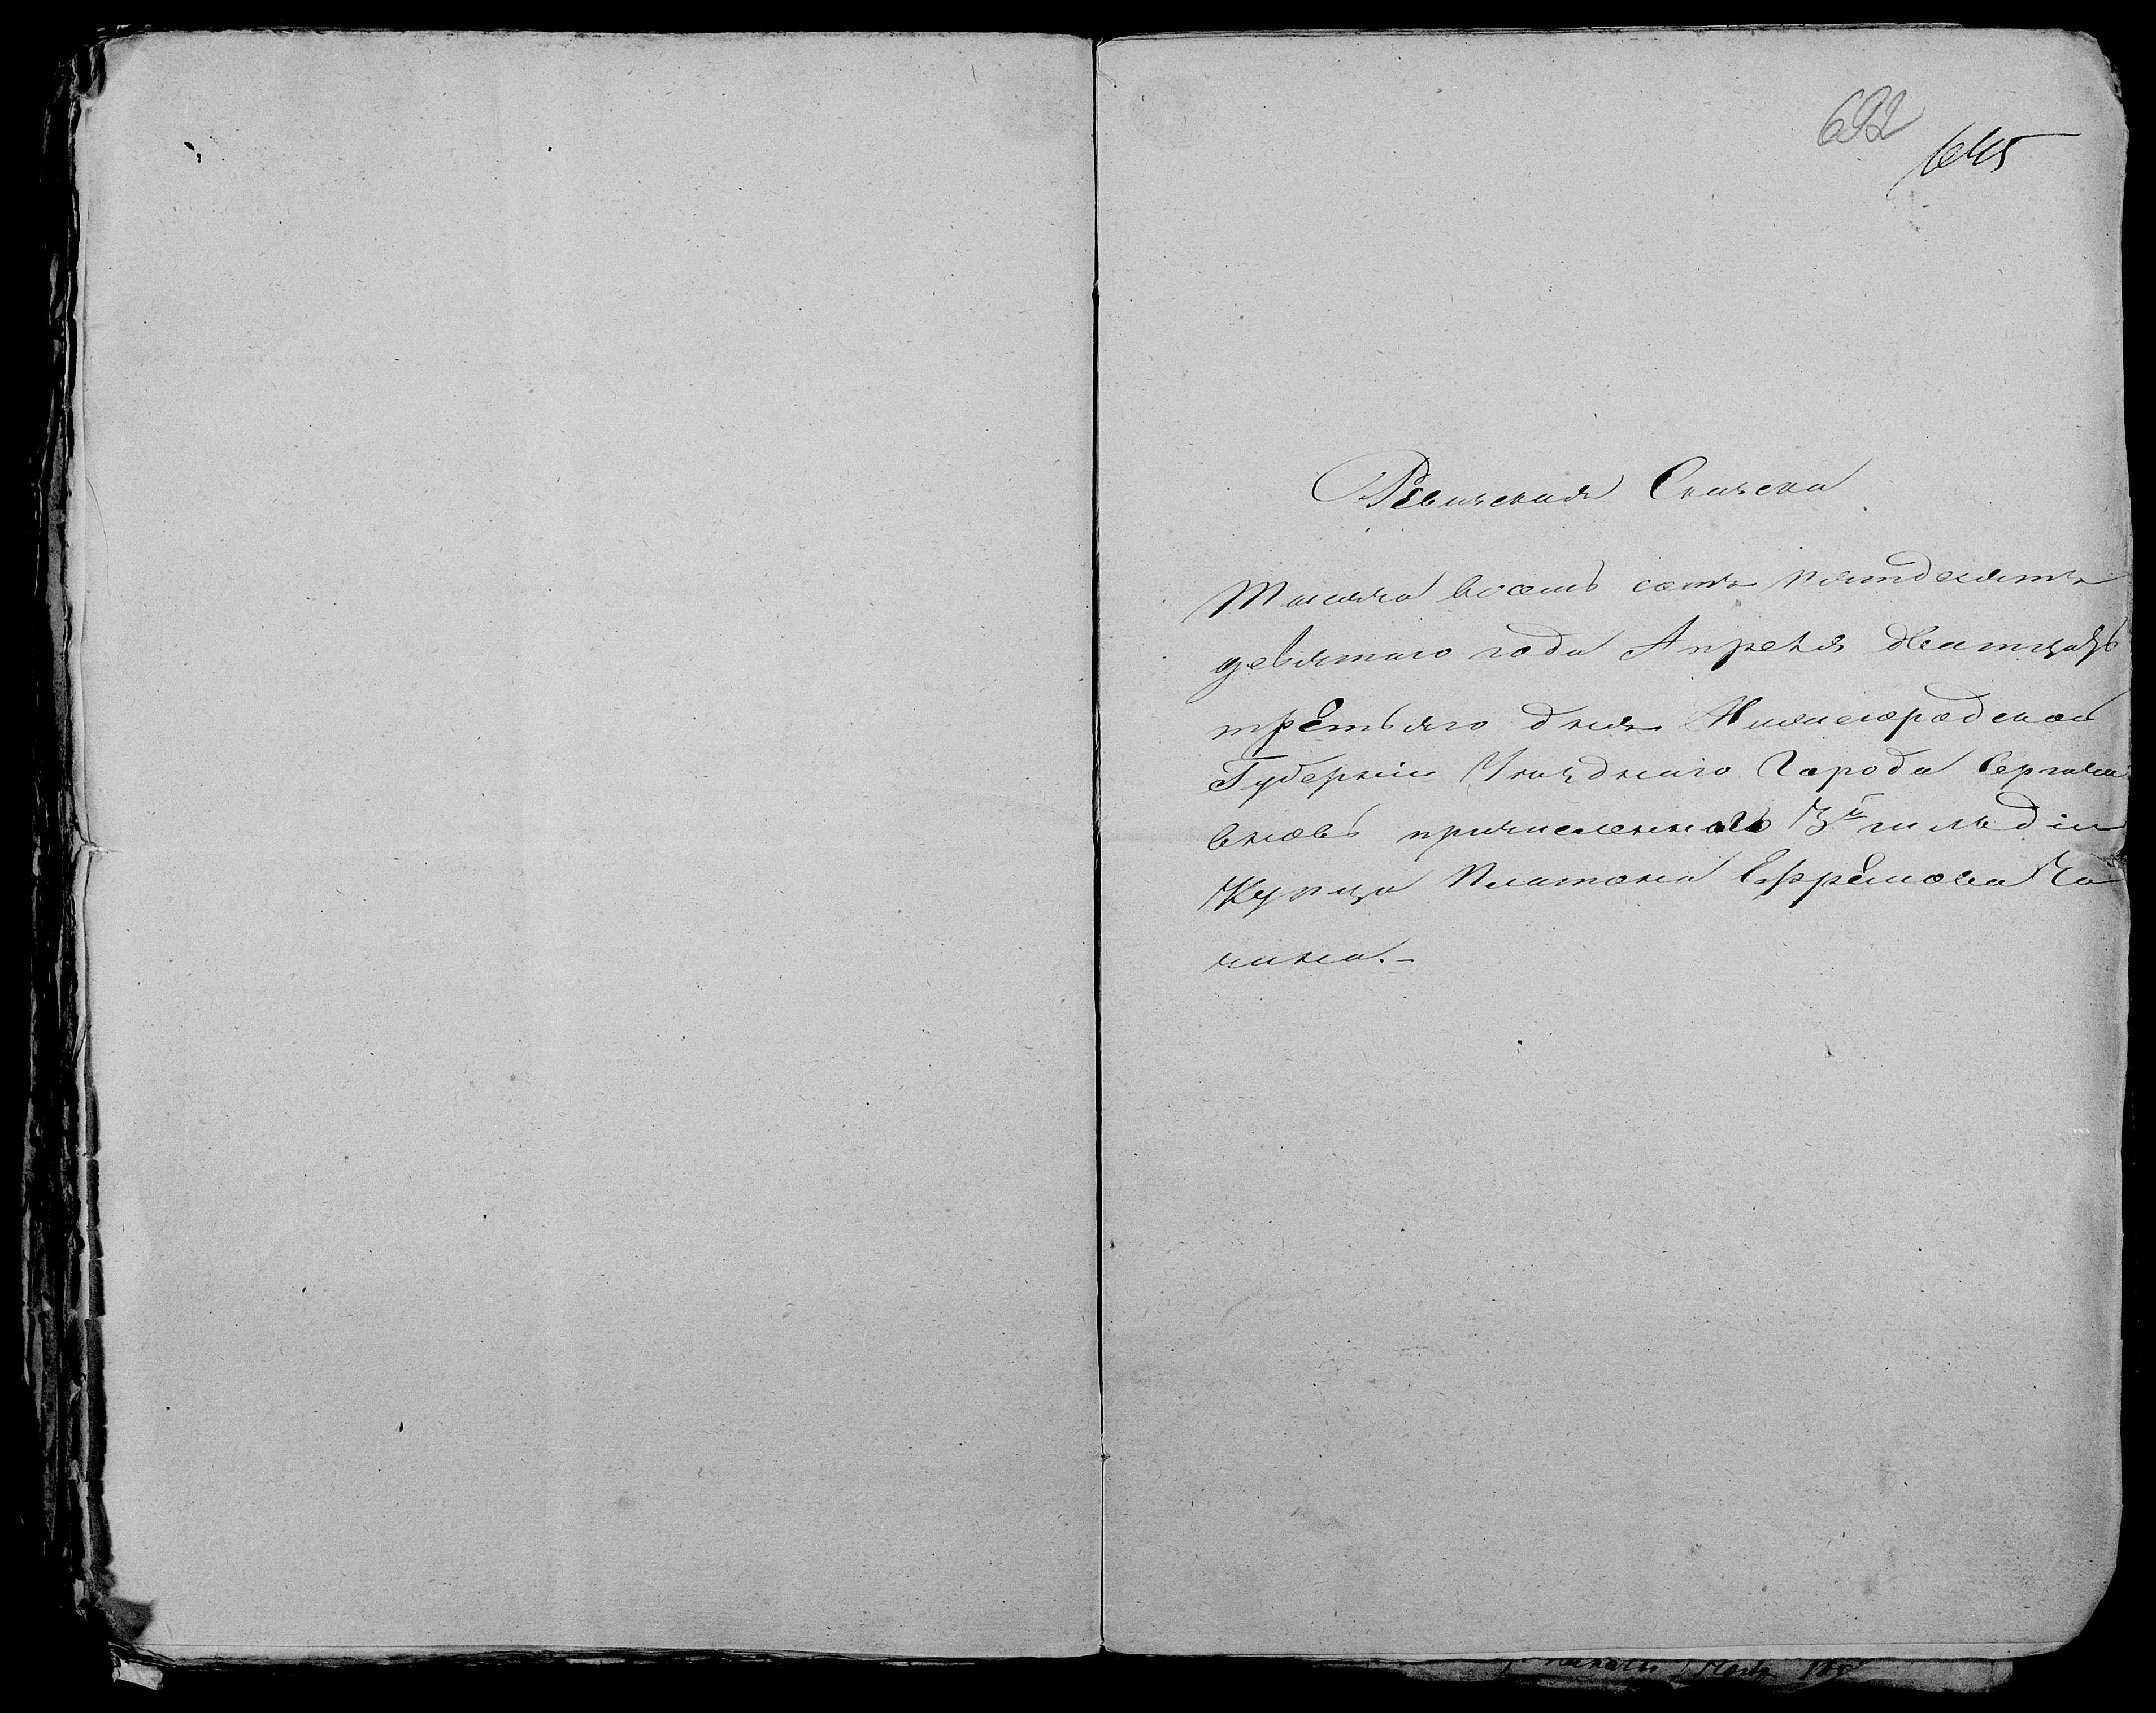 692
645
Ревизская Сказска
Тысяча восемь сотъ пятдесятъ
девятаго года Апреля дватцадь
третьяго дня Нижегородской
Губерніи Уѣзднаго Города Сергача
вновь причисленнаго 3й гильдіи
Купца Платона Ефремова Ча
чина.-